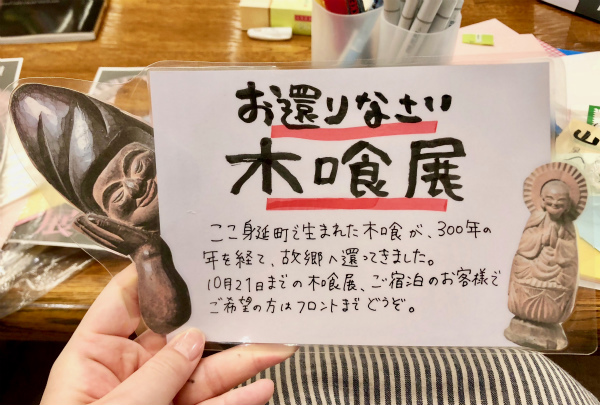 お還りなさい
木喰展
ここ身延町で生まれた木喰が、300年の
年を経て、故郷へ還ってきました。
10月21日までの木喰展、ご宿泊のお客様で
ご希望の方はフロントまでどうぞ。